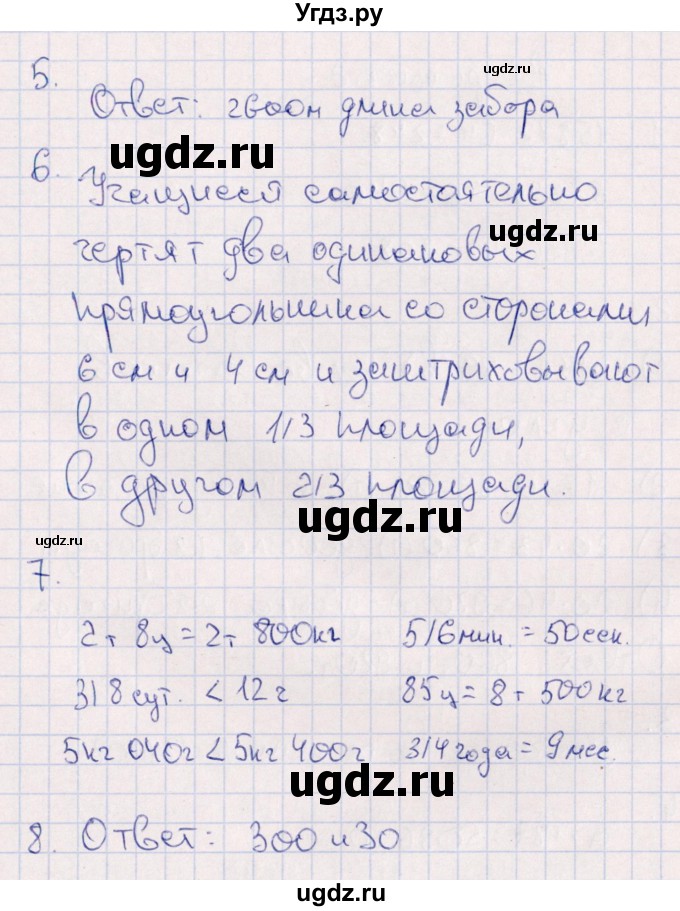 Угдз.ру
5.
ugdz.ru
Ответ: 2600м длина забора
ugdz.ru
6. Учащиеся самостоятельно
ugdz.ru
чертят два одинаковых
прямоугольника со сторонами
6 см и 4 см и заштриховывают
в одном 1/3 площади,
в другом 2/3 площади.
ugdz.ru
ugdz.ru
7.
2т 8ц = 2т 800кг 5/6 мин. = 50сек.
3/8 сут. < 12 ч 85ц = 8т 500кг
5кг 040г < 5кг 400г 3/4 года = 9 мес.
ugdz.ru
8. Ответ: 300 и 30
ugdz.ru